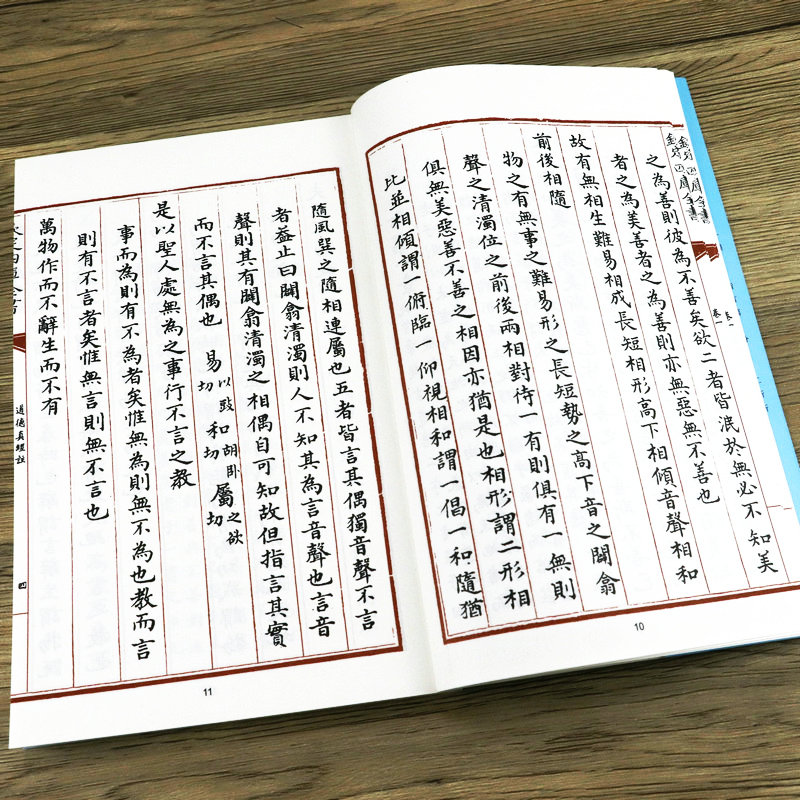 之為善則彼為不善矣欲二者皆泯於無必不知美
者之為美善者之為善則亦無惡無不善也
故有無相生難易相成長短相形高下相傾音聲相和
前後相隨
物之有無事之難易形之長短勢之高下音之闢翕
聲之清濁位之前後兩相對待一有則俱有一無則
俱無美惡善不善之相因亦猶是也相形謂二形相
比並相傾謂一俯臨一仰視相和謂一倡一和隨猶
卷一
10
隨風巽之隨相連屬也五者皆言其偶獨音聲不言
者蓋止曰闢翕清濁則人不知其為言音聲也言音
聲則其有闢翕清濁之相偶自可知故但指言其實
而不言其偶也 易以豉切和胡卧切屬之欲切
是以聖人處無為之事行不言之教
事而為則有不為者矣惟無為則無不為也教而言
則有不言者矣惟無言則無不言也
萬物作而不辭生而不有
道德真經註
四
11